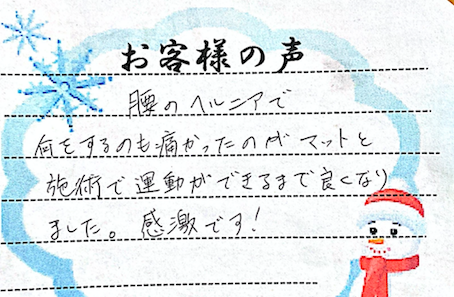 お客様の声
腰のヘルニアで
何をするのも痛かったのが マットと
施術で運動ができるまで良くなり
ました。感激です!